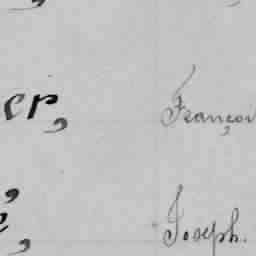 er, Françoi
Joseph.